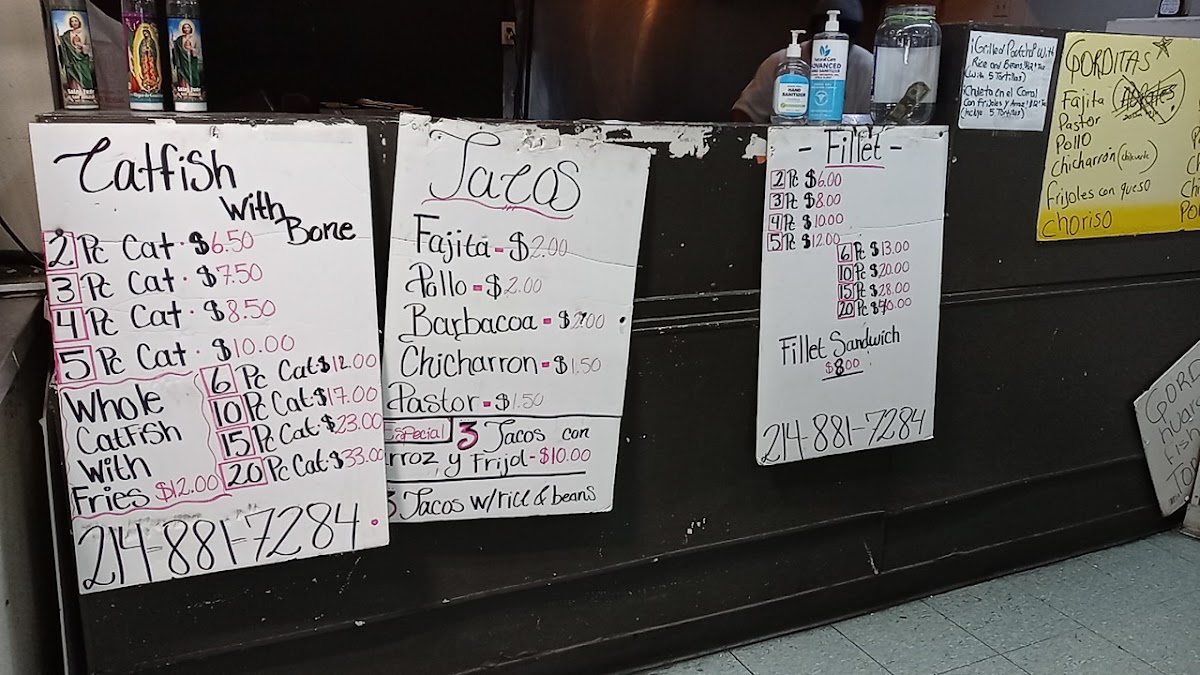 Catfish
With
Bone
2 Pc Cat. $6.50
3 Pc Cat. $7.50
4 Pc Cat. $8.50
5 Pc Cat. $10.00
6 Pc Cat. $12.00
10 Pc Cat. $17.00
15 Pc Cat. $23.00
20 Pc Cat. $33.00
Whole
Catfish
With
Fries $12.00
214-881-7284
Tacos
Fajita - $2.00
Pollo - $2.00
Barbacoa - $2.00
Chicharron - $1.50
Pastor - $1.50
Especial 3 Tacos con
rroz y Frijol - $10.00
3 Tacos w/rice & beans
- Fillet -
2 Pc $6.00
3 Pc $8.00
4 Pc $10.00
5 Pc $12.00
6 Pc $13.00
10 Pc $20.00
15 Pc $28.00
20 Pc $40.00
Fillet Sandwich
$8.00
214-881-7284
HAND
SANITIZER
ADVANCED
With
Rice and Beans
(With 5 Tortillas)
Con Frijoles y Arroz
GORDITAS
Fajita
Pastor
Pollo
Chicharrón
Frijoles con queso
Choriso